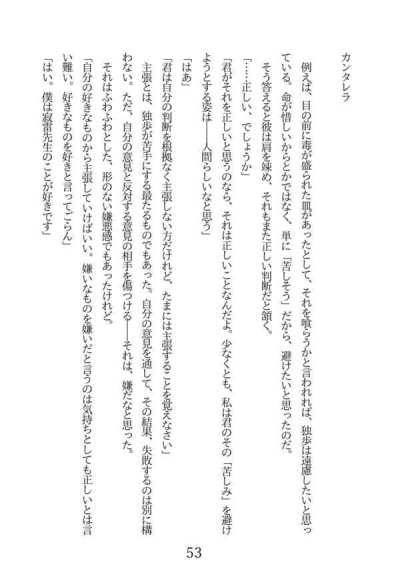 カンタレラ
例えば、目の前に毒が盛られた皿があったとして、それを喰らうかと言われれば、独歩は遠慮したいと思っ
ている。命が惜しいからとかではなく、単に「苦しそう」だから、避けたいと思ったのだ。
そう答えると彼は肩を竦め、それもまた正しい判断だと頷く。
「……正しい、でしょうか」
「君がそれを正しいと思うのなら、それは正しいことなんだよ。少なくとも、私は君のその「苦しみ」を避け
ようとする姿は――人間らしいなと思う」
「はあ」
「君は自分の判断を根拠なく主張しない方だけれど、たまには主張することを覚えなさい」
主張とは、独歩が苦手にする最たるものでもあった。自分の意見を通して、その結果、失敗するのは別に構
わない。ただ、自分の意見と反対する意見の相手を傷つける――それは、嫌だなと思った。
それはふわふわとした、形のない嫌悪感でもあったけれど。
「自分の好きなものから主張していけばいい。嫌いなものを嫌いだと言うのは気持ちとしても正しいとは言
い難い。好きなものを好きと言ってごらん」
「はい。僕は寂雷先生のことが好きです」
53